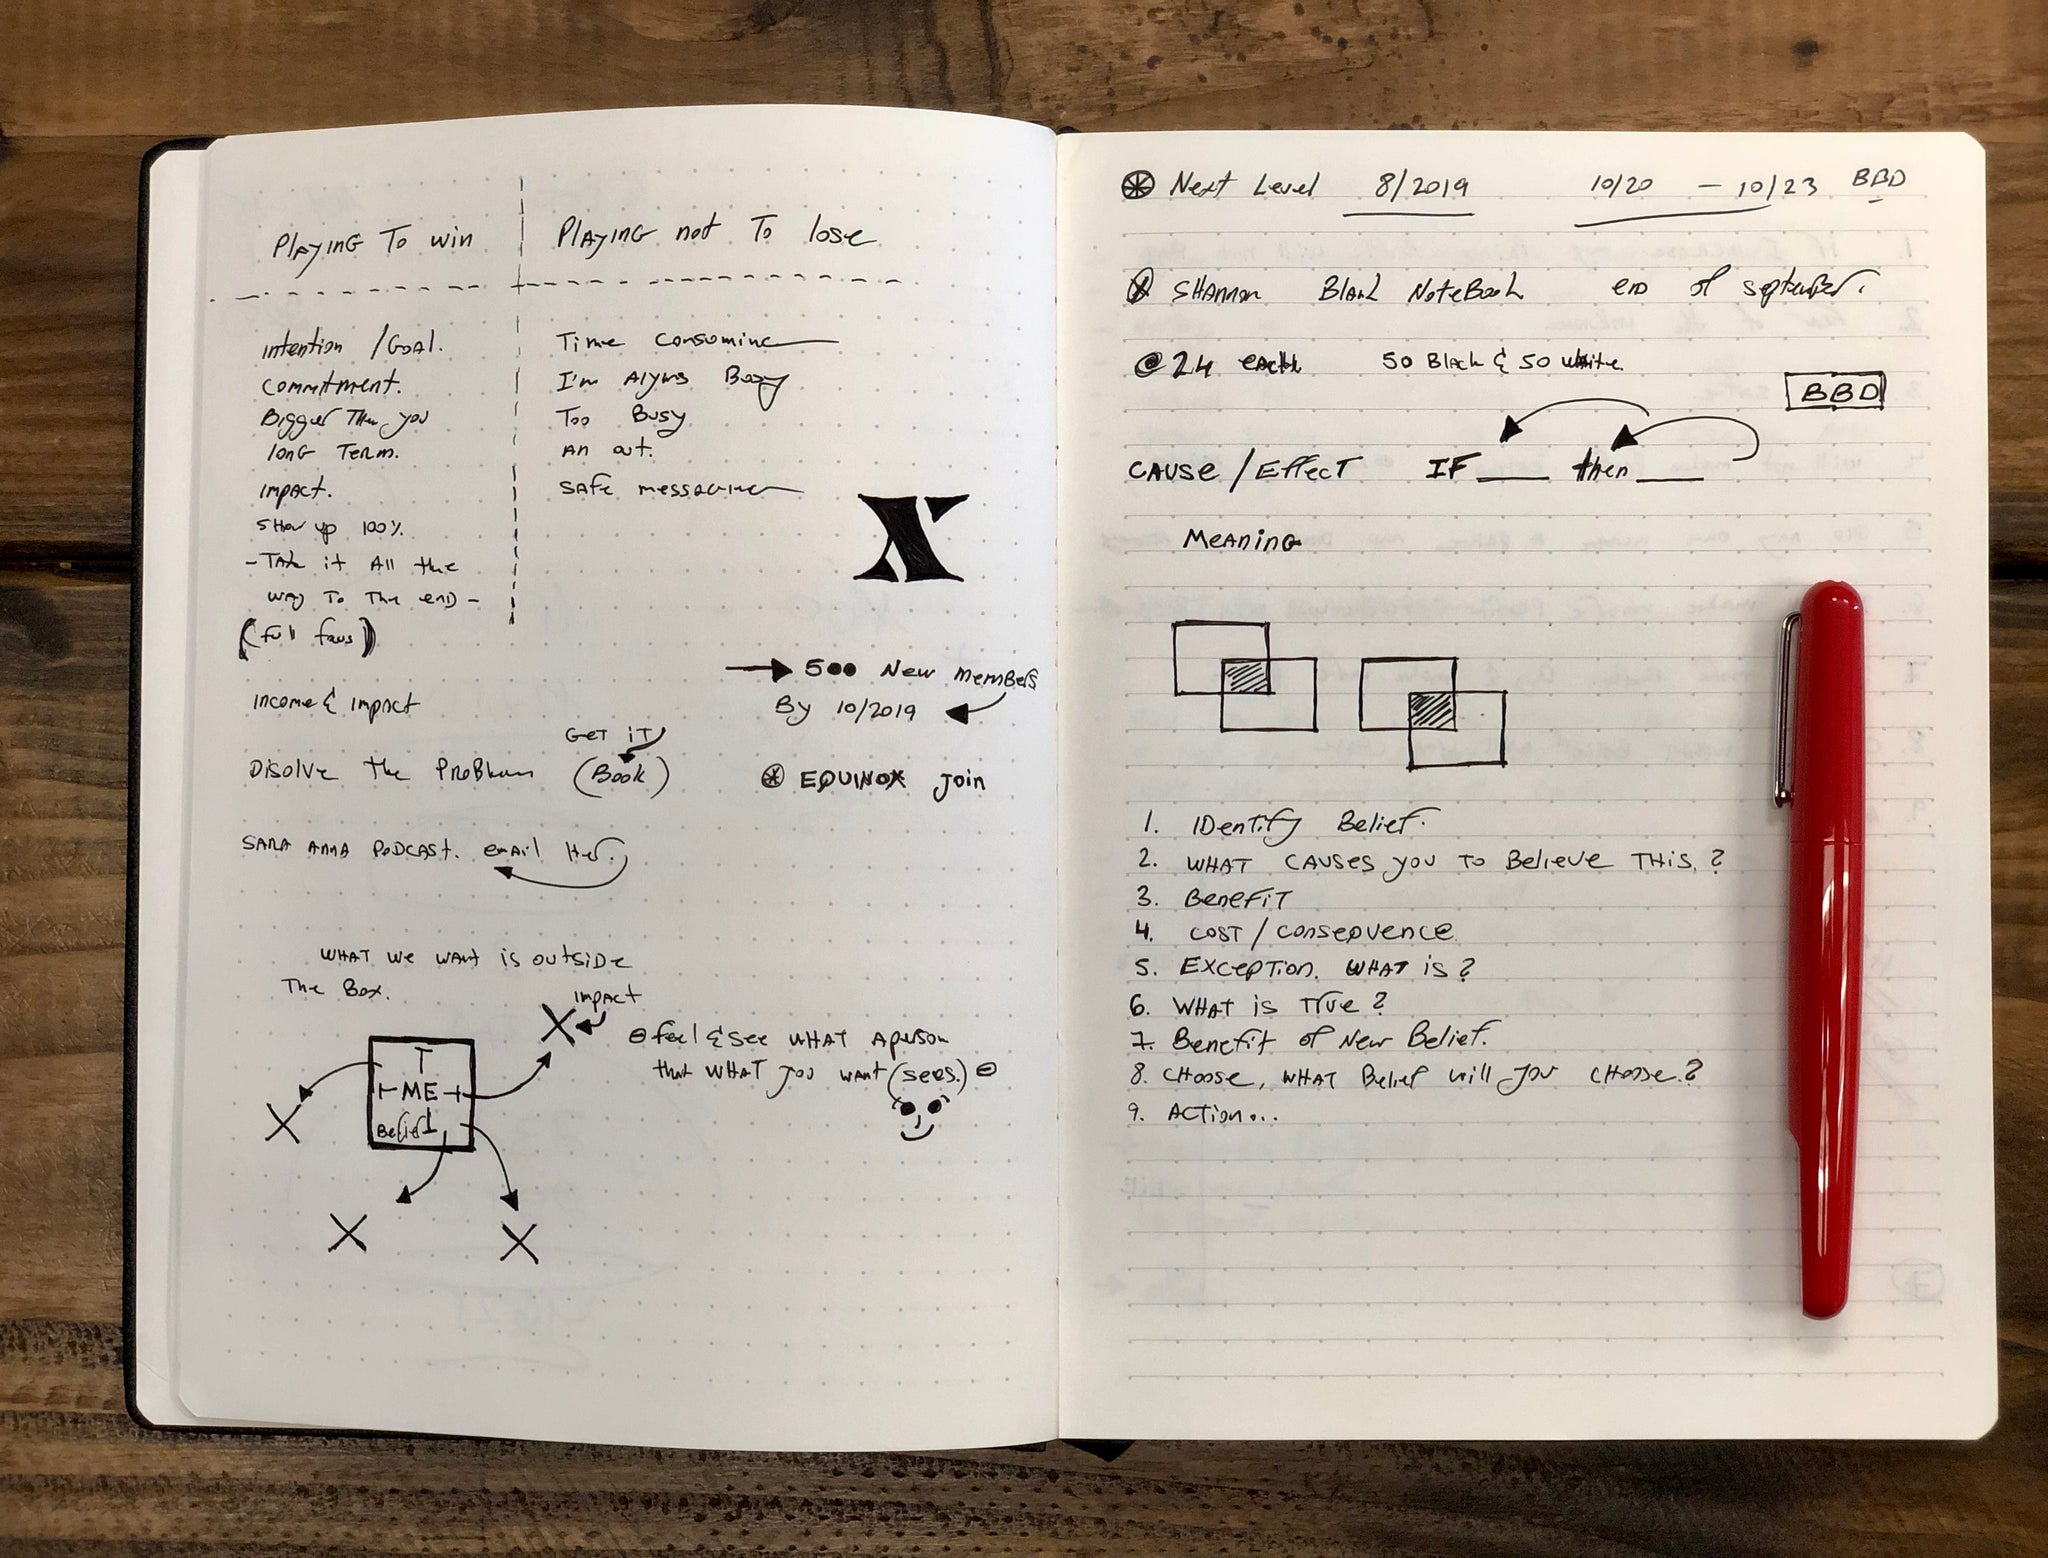 Playing To win
Playing not To lose
intention / Goal.
commitment.
Bigger Then you
long Term.
impact.
Show up 100%
- Take it All the
way To The end -
(full
Time consuming
I'm Alyws Busy
Too Busy
An out.
Safe messaging
X
Income & impact
→ 500 New members
By 10/2019
Get iT
Disolve the Problem (Book)
EQUINOX Join
SARA ANNA PODCAST. email Her.
WHAT we want is outside
The Box.
impact
X
ME
Belief
X
X
X
feel & see WHAT A person
that WHAT you want (sees.)
Next Level 8/2019 10/20 - 10/23 BBD
SHannon Blank NoteBook end of september.
@ 24 each 50 Black & 50 white.
BBD
CAUSE / Effect IF ____ then ____
Meaning
1. IDentify Belief.
2. WHAT CAUSES you TO Believe THis.?
3. BenefiT
4. COST / consequence
5. EXCEPTion. WHAT is?
6. WHAT is True?
7. Benefit of New Belief.
8. CHoose, WHAT Belief will you CHoose?
9. ACTion...